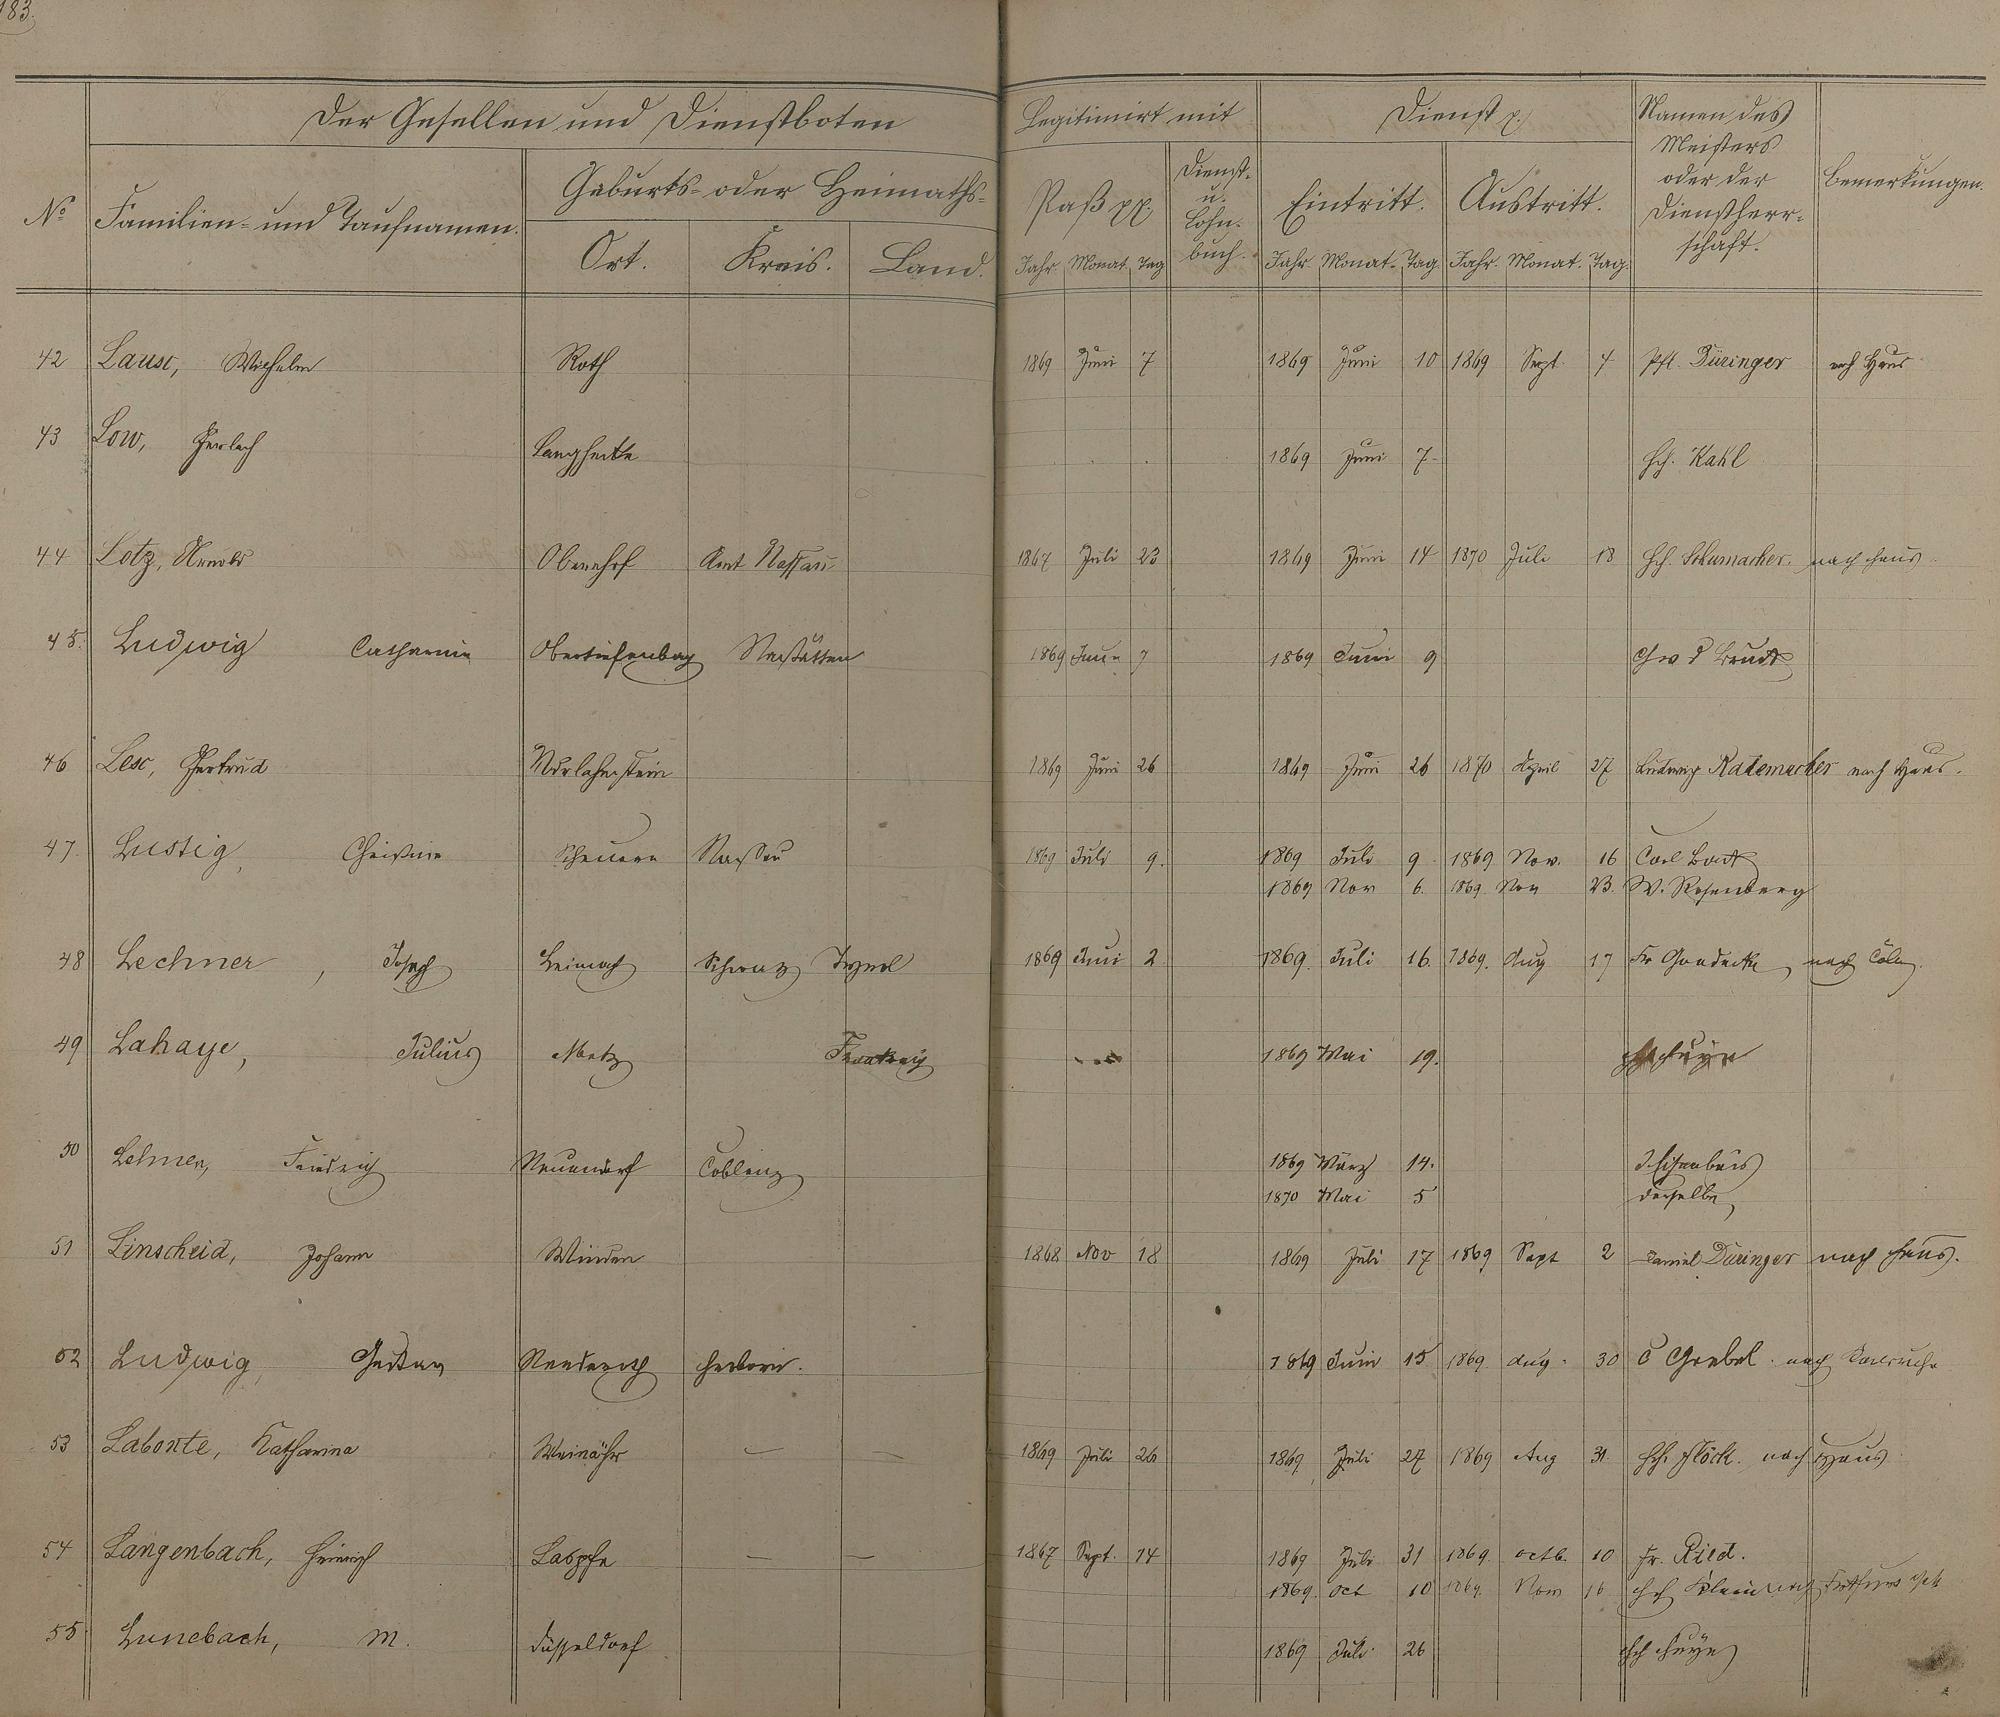 183.
Der Gesellen und Dienstboten
Legitimirt mit
Dienst p.
Namen des Meisters oder der Dienstherrschaft.
Bemerkungen.
No
Familien- und Taufnamen.
Geburts- oder Heimaths-
Ort. Kreis. Land.
Paß pp.
Dienst- u. Lohn-buch.
Eintritt. Austritt.
Jahr. Monat Tag Jahr. Monat. Tag. Jahr. Monat. Tag.
42 Lause, Wilhelm Roth 1869 Juni 7 1869 Juni 10 1869 Sept. 4 Düringer nach Haus
43 Löw, Gerlach Langhecke 1869 Juni 7 Hch. Kahl
44 Lotz, Arnold Obernhof Amt Nassau 1867 Juli 23 1869 Juni 14 1870 Juli 18 Hch. Schumacher nach Haus
45. Ludwig Catharina Obertiefenbach Nastätten 1869 Juni 7 1869 Juni 9
46 Lese, Gertrud Ndrlahnstein 1869 Juni 26 1869 Juni 26 1870 April 27 Ludwig Rademacher nach Haus.
47. Lustig, Christine Scheuern Nassau 1869 Juli 9. 1869 Juli 9 1869 Nov. 16 Carl
1869 Nov 6. 1869. Nov 23. W. Rosenberg
48 Lechner, Joseph Schwaz Tyrol 1869 Juni 2 1869. Juli 16. 1869. Aug 17 Fr nach Cöln.
49 Lahaye, Julius Metz Frankreich 1869 Mai 19.
50 Lehmen, Friedrich Neuendorf Coblenz 1869 März 14. J. Eisenbeis
1870 Mai 5 derselbe
51 Linscheid, Johann Winden 1868 Nov 18 1869 Juli 17 1869 Sept 2 Daniel Düringer nach Haus.
52 Ludwig, Gustav Nenderoth Herborn. 1869 Juni 15 1869. Aug. 30 C Grebel. nach Karlsruhe
53 Labonte, Katharina Weinähr — — 1869 Juli 26 1869 Juli 27 1869 Aug 31. Hch. Flöck. nach Haus
54 Langenbach, Heinrich Laasphe — — 1867 Sept. 14 1869 Juli 31 1869. octb. 10 Fr. Ried.
1869. oct 10 1869. Nov 16
55. Lunebach, M. Düsseldorf 1869 Juli 26